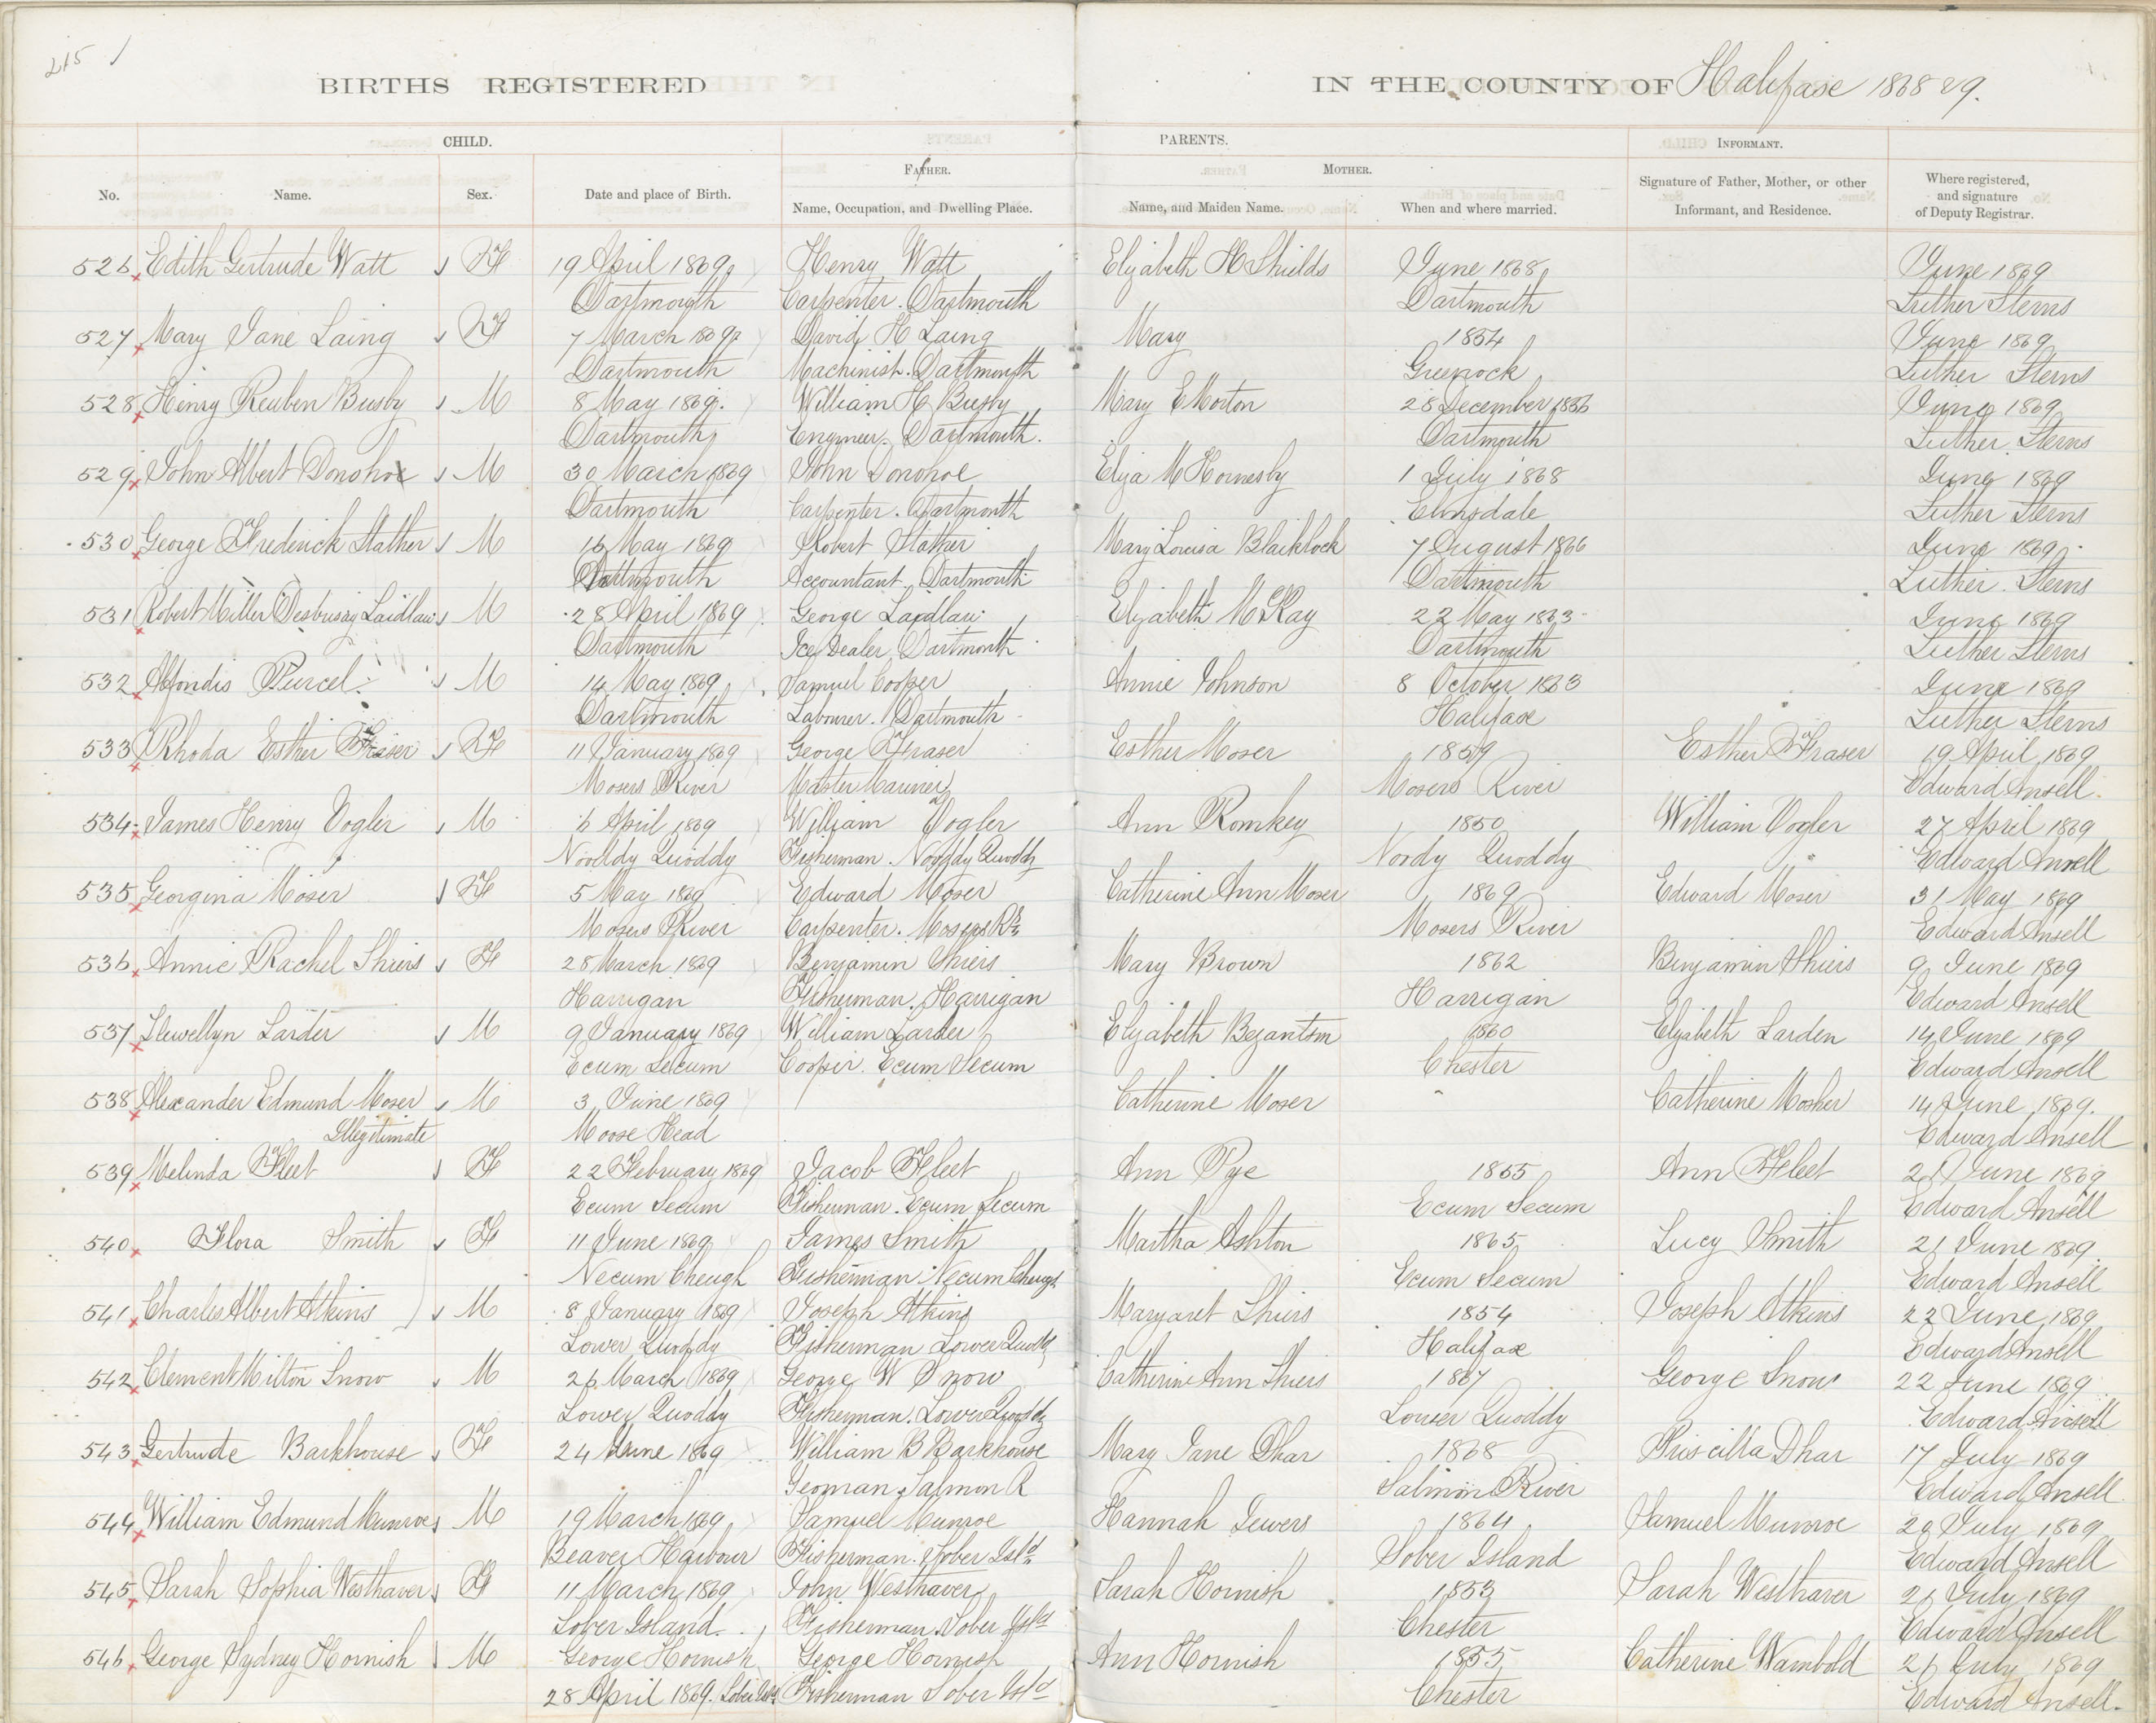 215 /
BIRTHS REGISTERED IN THE COUNTY OF Halifax 1868 & 9.
CHILD. PARENTS. INFORMANT.
FATHER. MOTHER.
No. Name. Sex. Date and place of Birth. Name, Occupation, and Dwelling Place. Name, and Maiden Name. When and where married. Signature of Father, Mother, or other Informant, and Residence. Where registered, and signature of Deputy Registrar.
526 Edith Gertrude Watt F 19 April 1869 Henry Watt Elizabeth H Shields June 1868 June 1869
Dartmouth Carpenter. Dartmouth Dartmouth Luther Sterns
527 Mary Jane Laing F 7 March 1869 David H Laing Mary 1854 June 1869
Dartmouth Machinist. Dartmouth Greenock Luther Sterns
528 Henry Reuben Busby M 8 May 1869. William H Busby Mary E Morton 28 December 1856 June 1869
Dartmouth Engineer. Dartmouth. Dartmouth Luther Sterns
529 John Albert Donohoe M 30 March 1869 John Donohoe Eliza M Hornesby 1 July 1868 June 1869
Dartmouth Carpenter. Dartmouth Elmsdale Luther Sterns
530 George Frederick Stather M 16 May 1869 Robert Stather Mary Louisa Blaiklock 7 August 1866 June 1869
Dartmouth Accountant. Dartmouth Dartmouth Luther Sterns
531 Robert Miller Desbrisay Laidlaw M 28 April 1869 George Laidlaw Elizabeth McKay 22 May 1863 June 1869
Dartmouth Ice Dealer Dartmouth Dartmouth Luther Sterns
532 Purcel M 14 May 1869 Samuel Cooper Annie Johnson 8 October 1863 June 1869
Dartmouth Labourer. Dartmouth Halifax Luther Sterns
533 Rhoda Esther Fraser F 11 January 1869 George Fraser Esther Moser 1859 Esther Fraser 19 April 1869
Mosers River Master Mariner Mosers River Edward Ansell.
534 James Henry Vogler M 6 April 1869 William Vogler Ann Romkey 1850 William Vogler 27 April 1869
Nooddy Quoddy Fisherman. Nooddy Quoddy Noody Quoddy Edward Ansell
535 Georgina Moser F 5 May 1869 Edward Moser Catherine Ann Moser 1869 Edward Moser 31 May 1869
Mosers River Carpenter. Mosers Rr Mosers River Edward Ansell
536 Annie Rachel Shiers F 28 March 1869 Benjamin Shiers Mary Brown 1862 Benjamin Shiers 9 June 1869
Harrigan Fisherman. Harrigan Harrigan Edward Ansell
537 Llewellyn Larder M 9 January 1869 William Larder Elizabeth Bezantson 1860 Elizabeth Larden 14 June 1869
Ecum Secum Cooper. Ecum Secum Chester Edward Ansell
538 Alexander Edmund Moser M 3 June 1869 Catherine Moser Catherine Mosher 14 June 1869.
Illegitimate Moose Head Edward Ansell
539 Melinda Fleet F 22 February 1869 Jacob Fleet Ann Pye 1855 Ann Fleet 21 June 1869
Ecum Secum Fisherman. Ecum Secum Ecum Secum Edward Ansell
540 Flora Smith F 11 June 1869 James Smith Martha Ashton 1865 Lucy Smith 21 June 1869
Necum Cheugh Fisherman Necum Cheugh Ecum Secum Edward Ansell
541 Charles Albert Atkins M 8 January 1869 Joseph Atkins Margaret Shiers 1854 Joseph Atkins 22 June 1869
Lower Quoddy Fisherman Lower Quoddy Halifax Edward Ansell
542 Clement Milton Snow M 26 March 1869 George W Snow Catherine Ann Shiers 1867 George Snow 22 June 1869
Lower Quoddy Fisherman. Lower Quoddy Lower Quoddy Edward Ansell
543 Gertrude Barkhouse F 24 June 1869 William B Barkhouse Mary Jane Dhar 1868 Priscilla Dhar 17 July 1869
Yeoman Salmon R Salmon River Edward Ansell
544 William Edmund Munroe M 19 March 1869 Samuel Munroe Hannah Jewers 1864 Samuel Munroe 20 July 1869
Beaver Harbour Fisherman. Sober Isld Sober Island Edward Ansell
545 Sarah Sophia Westhaver F 11 March 1869 John Westhaver Sarah Hornish 1853 Sarah Westhaver 21 July 1869
Sober Island. Fisherman. Sober Isld Chester Edward Ansell
546 George Sydney Hornish M George Hornish George Hornish Ann Hornish 1855 Catherine Wambold 21 July 1869
28 April 1869. Sober Isld Fisherman Sober Isld Chester Edward Ansell.